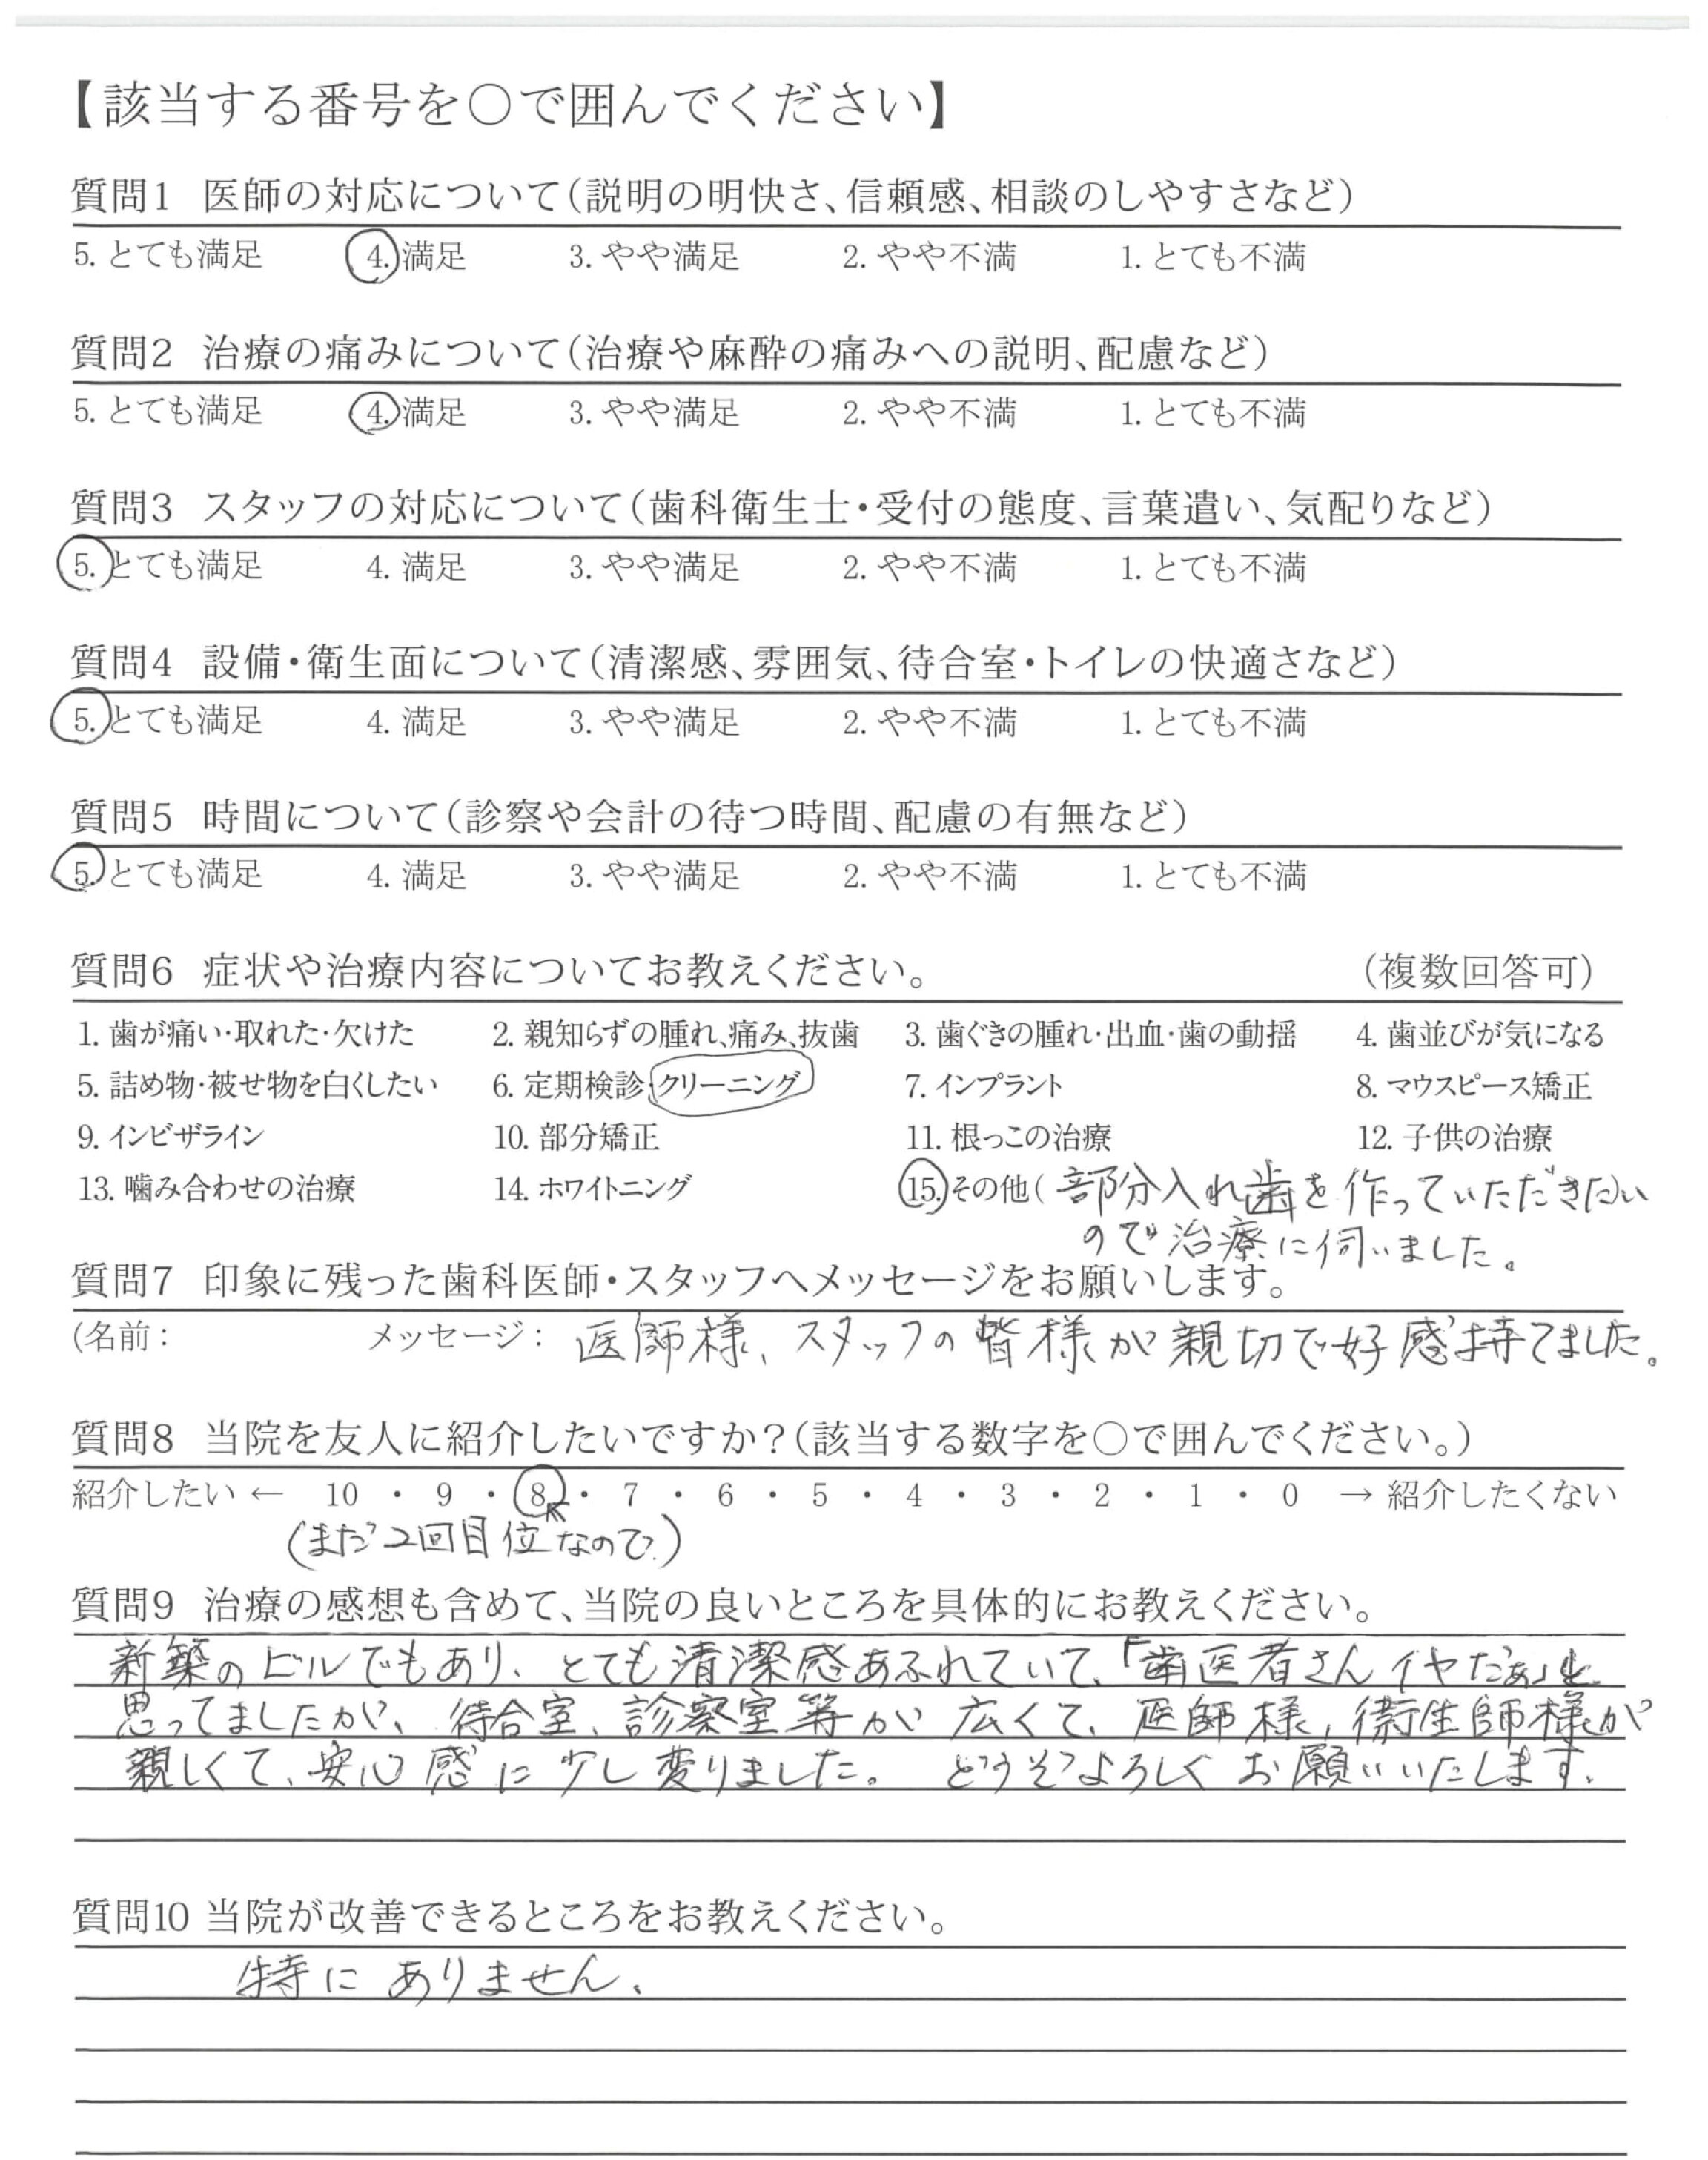 【該当する番号を○で囲んでください】
質問1 医師の対応について(説明の明快さ、信頼感、相談のしやすさなど)
5. とても満足 4. 満足 3. やや満足 2. やや不満 1. とても不満
質問2 治療の痛みについて(治療や麻酔の痛みへの説明、配慮など)
5. とても満足 4. 満足 3. やや満足 2. やや不満 1. とても不満
質問3 スタッフの対応について(歯科衛生士・受付の態度、言葉遣い、気配りなど)
5. とても満足 4. 満足 3. やや満足 2. やや不満 1. とても不満
質問4 設備・衛生面について(清潔感、雰囲気、待合室・トイレの快適さなど)
5. とても満足 4. 満足 3. やや満足 2. やや不満 1. とても不満
質問5 時間について(診察や会計の待つ時間、配慮の有無など)
5. とても満足 4. 満足 3. やや満足 2. やや不満 1. とても不満
質問6 症状や治療内容についてお教えください。 (複数回答可)
1. 歯が痛い・取れた・欠けた 2. 親知らずの腫れ、痛み、抜歯 3. 歯ぐきの腫れ・出血・歯の動揺 4. 歯並びが気になる
5. 詰め物・被せ物を白くしたい 6. 定期検診・クリーニング 7. インプラント 8. マウスピース矯正
9. インビザライン 10. 部分矯正 11. 根っこの治療 12. 子供の治療
13. 噛み合わせの治療 14. ホワイトニング 15. その他( 部分入れ歯を作っていただきたい
ので治療に伺いました。
質問7 印象に残った歯科医師・スタッフへメッセージをお願いします。
(名前: メッセージ: 医師様、スタッフの皆様が親切で好感持てました。
質問8 当院を友人に紹介したいですか?(該当する数字を○で囲んでください。)
紹介したい ← 10 ・ 9 ・ 8 ・ 7 ・ 6 ・ 5 ・ 4 ・ 3 ・ 2 ・ 1 ・ 0 → 紹介したくない
(まだ2回目位なので)
質問9 治療の感想も含めて、当院の良いところを具体的にお教えください。
新築のビルでもあり、とても清潔感あふれていて、「歯医者さんイヤだぁ」と
思ってましたが、待合室、診察室等が広くて、医師様、衛生師様が
親しくて、安心感に少し変りました。 どうぞよろしくお願いいたします。
質問10 当院が改善できるところをお教えください。
特にありません。